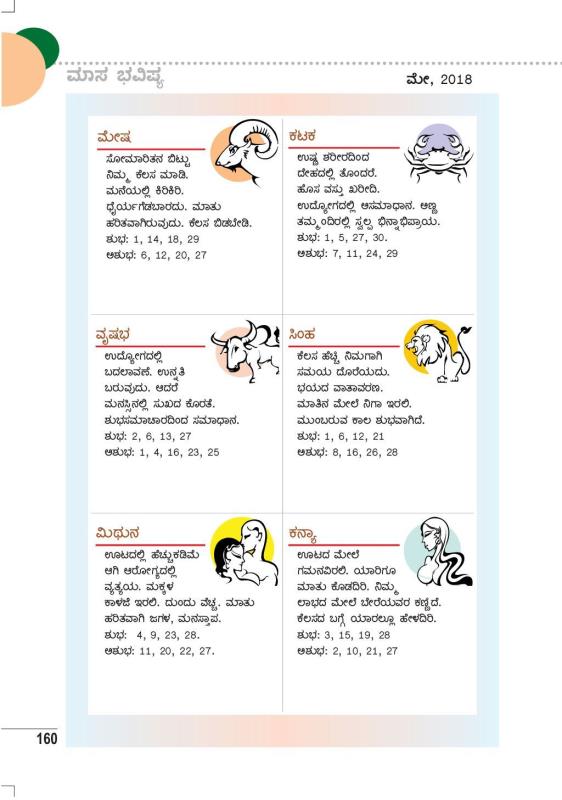 ಮಾಸ ಭವಿಷ್ಯ
ಮೇ, 2018
ಮೇಷ
ಸೋಮಾರಿತನ ಬಿಟ್ಟು
ನಿಮ್ಮ ಕೆಲಸ ಮಾಡಿ.
ಮನೆಯಲ್ಲಿ ಕಿರಿಕಿರಿ.
ಧೈರ್ಯಗೆಡಬಾರದು. ಮಾತು
ಹರಿತವಾಗಿರುವುದು. ಕೆಲಸ ಬಿಡಬೇಡಿ.
ಶುಭ: 1, 14, 18, 29
ಅಶುಭ: 6, 12, 20, 27
ವೃಷಭ
ಉದ್ಯೋಗದಲ್ಲಿ
ಬದಲಾವಣೆ. ಉನ್ನತಿ
ಬರುವುದು. ಆದರೆ
ಮನಸ್ಸಿನಲ್ಲಿ ಸುಖದ ಕೊರತೆ.
ಶುಭಸಮಾಚಾರದಿಂದ ಸಮಾಧಾನ.
ಶುಭ: 2, 6, 13, 27
ಅಶುಭ: 1, 4, 16, 23, 25
ಮಿಥುನ
ಊಟದಲ್ಲಿ ಹೆಚ್ಚುಕಡಿಮೆ
ಆಗಿ ಆರೋಗ್ಯದಲ್ಲಿ
ವ್ಯತ್ಯಯ. ಮಕ್ಕಳ
ಕಾಳಜಿ ಇರಲಿ. ದುಂದು ವೆಚ್ಚ. ಮಾತು
ಹರಿತವಾಗಿ ಜಗಳ, ಮನಸ್ತಾಪ.
ಶುಭ: 4, 9, 23, 28.
ಅಶುಭ: 11, 20, 22, 27.
ಕಟಕ
ಉಷ್ಣ ಶರೀರದಿಂದ
ದೇಹದಲ್ಲಿ ತೊಂದರೆ.
ಹೊಸ ವಸ್ತು ಖರೀದಿ.
ಉದ್ಯೋಗದಲ್ಲಿ ಅಸಮಾಧಾನ. ಅಣ್ಣ
ತಮ್ಮಂದಿರಲ್ಲಿ ಸ್ವಲ್ಪ ಭಿನ್ನಾಭಿಪ್ರಾಯ.
ಶುಭ: 1, 5, 27, 30.
ಅಶುಭ: 7, 11, 24, 29
ಸಿಂಹ
ಕೆಲಸ ಹೆಚ್ಚಿ ನಿಮಗಾಗಿ
ಸಮಯ ದೊರೆಯದು.
ಭಯದ ವಾತಾವರಣ.
ಮಾತಿನ ಮೇಲೆ ನಿಗಾ ಇರಲಿ.
ಮುಂಬರುವ ಕಾಲ ಶುಭವಾಗಿದೆ.
ಶುಭ: 1, 6, 12, 21
ಅಶುಭ: 8, 16, 26, 28
ಕನ್ಯಾ
ಊಟದ ಮೇಲೆ
ಗಮನವಿರಲಿ. ಯಾರಿಗೂ
ಮಾತು ಕೊಡದಿರಿ. ನಿಮ್ಮ
ಲಾಭದ ಮೇಲೆ ಬೇರೆಯವರ ಕಣ್ಣಿದೆ.
ಕೆಲಸದ ಬಗ್ಗೆ ಯಾರಲ್ಲೂ ಹೇಳದಿರಿ.
ಶುಭ: 3, 15, 19, 28
ಅಶುಭ: 2, 10, 21, 27
160